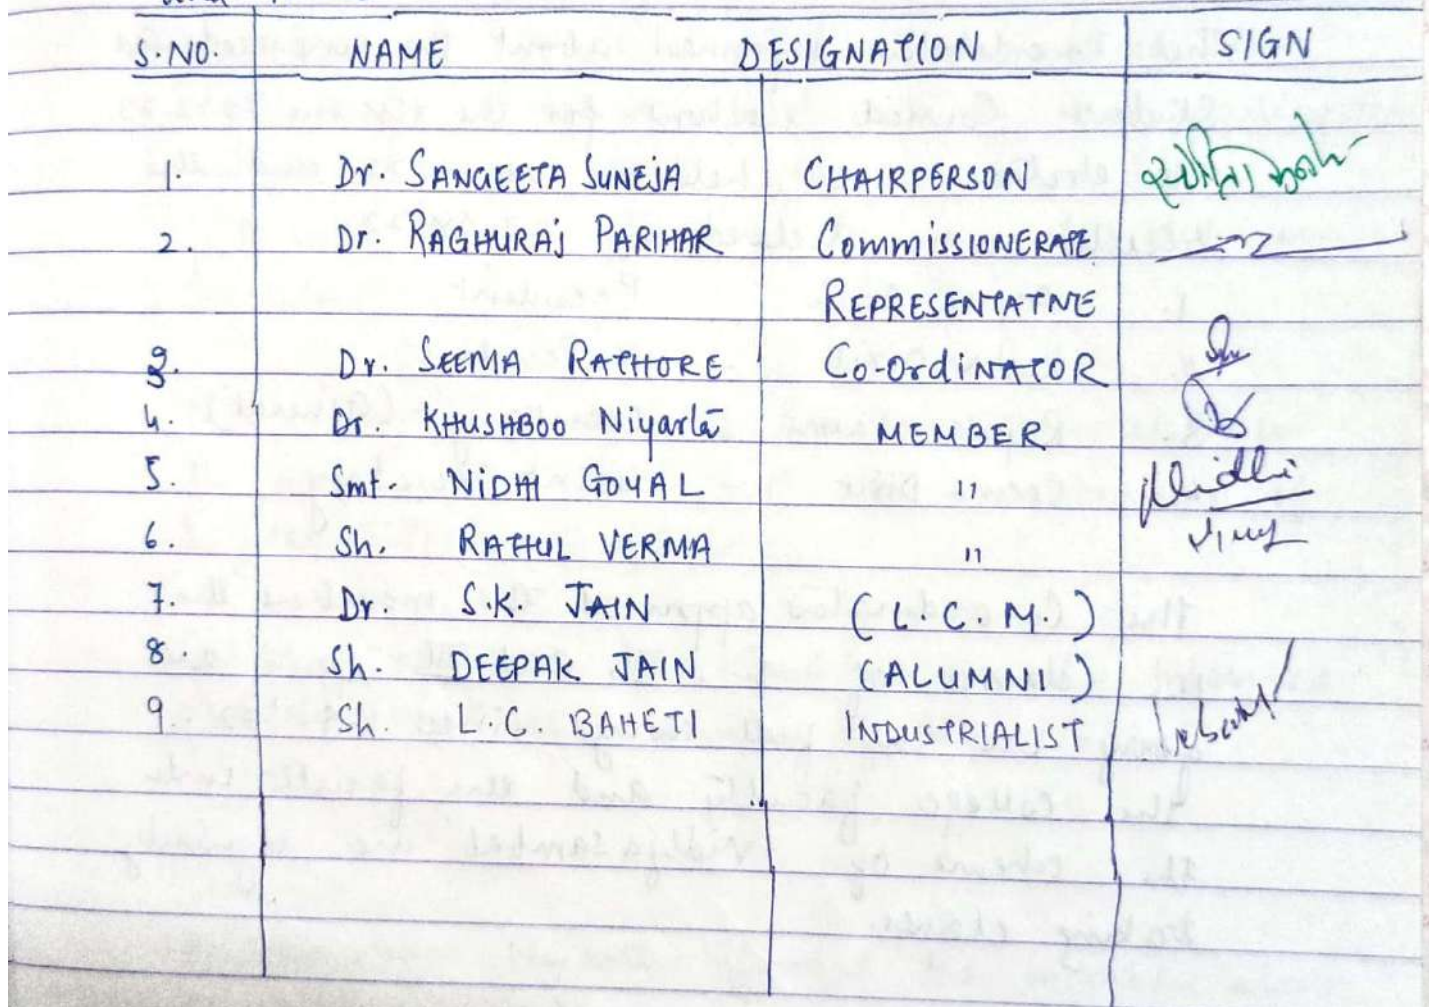 S.NO. NAME DESIGNATION SIGN
1. Dr. SANGEETA SUNEJA CHAIRPERSON
2. Dr. RAGHURAJ PARIHAR COMMISSIONERATE
REPRESENTATIVE
3. Dr. SEEMA RATHORE CO-ORDINATOR
4. Dr. KHUSHBOO
MEMBER
5. Smt. NIDHI GOYAL " Nidhi
6. Sh. RAHUL VERMA "
7. Dr. S.K. JAIN (L.C.M.)
8. Sh. DEEPAK JAIN (ALUMNI)
9. Sh. L.C. BAHETI INDUSTRIALIST